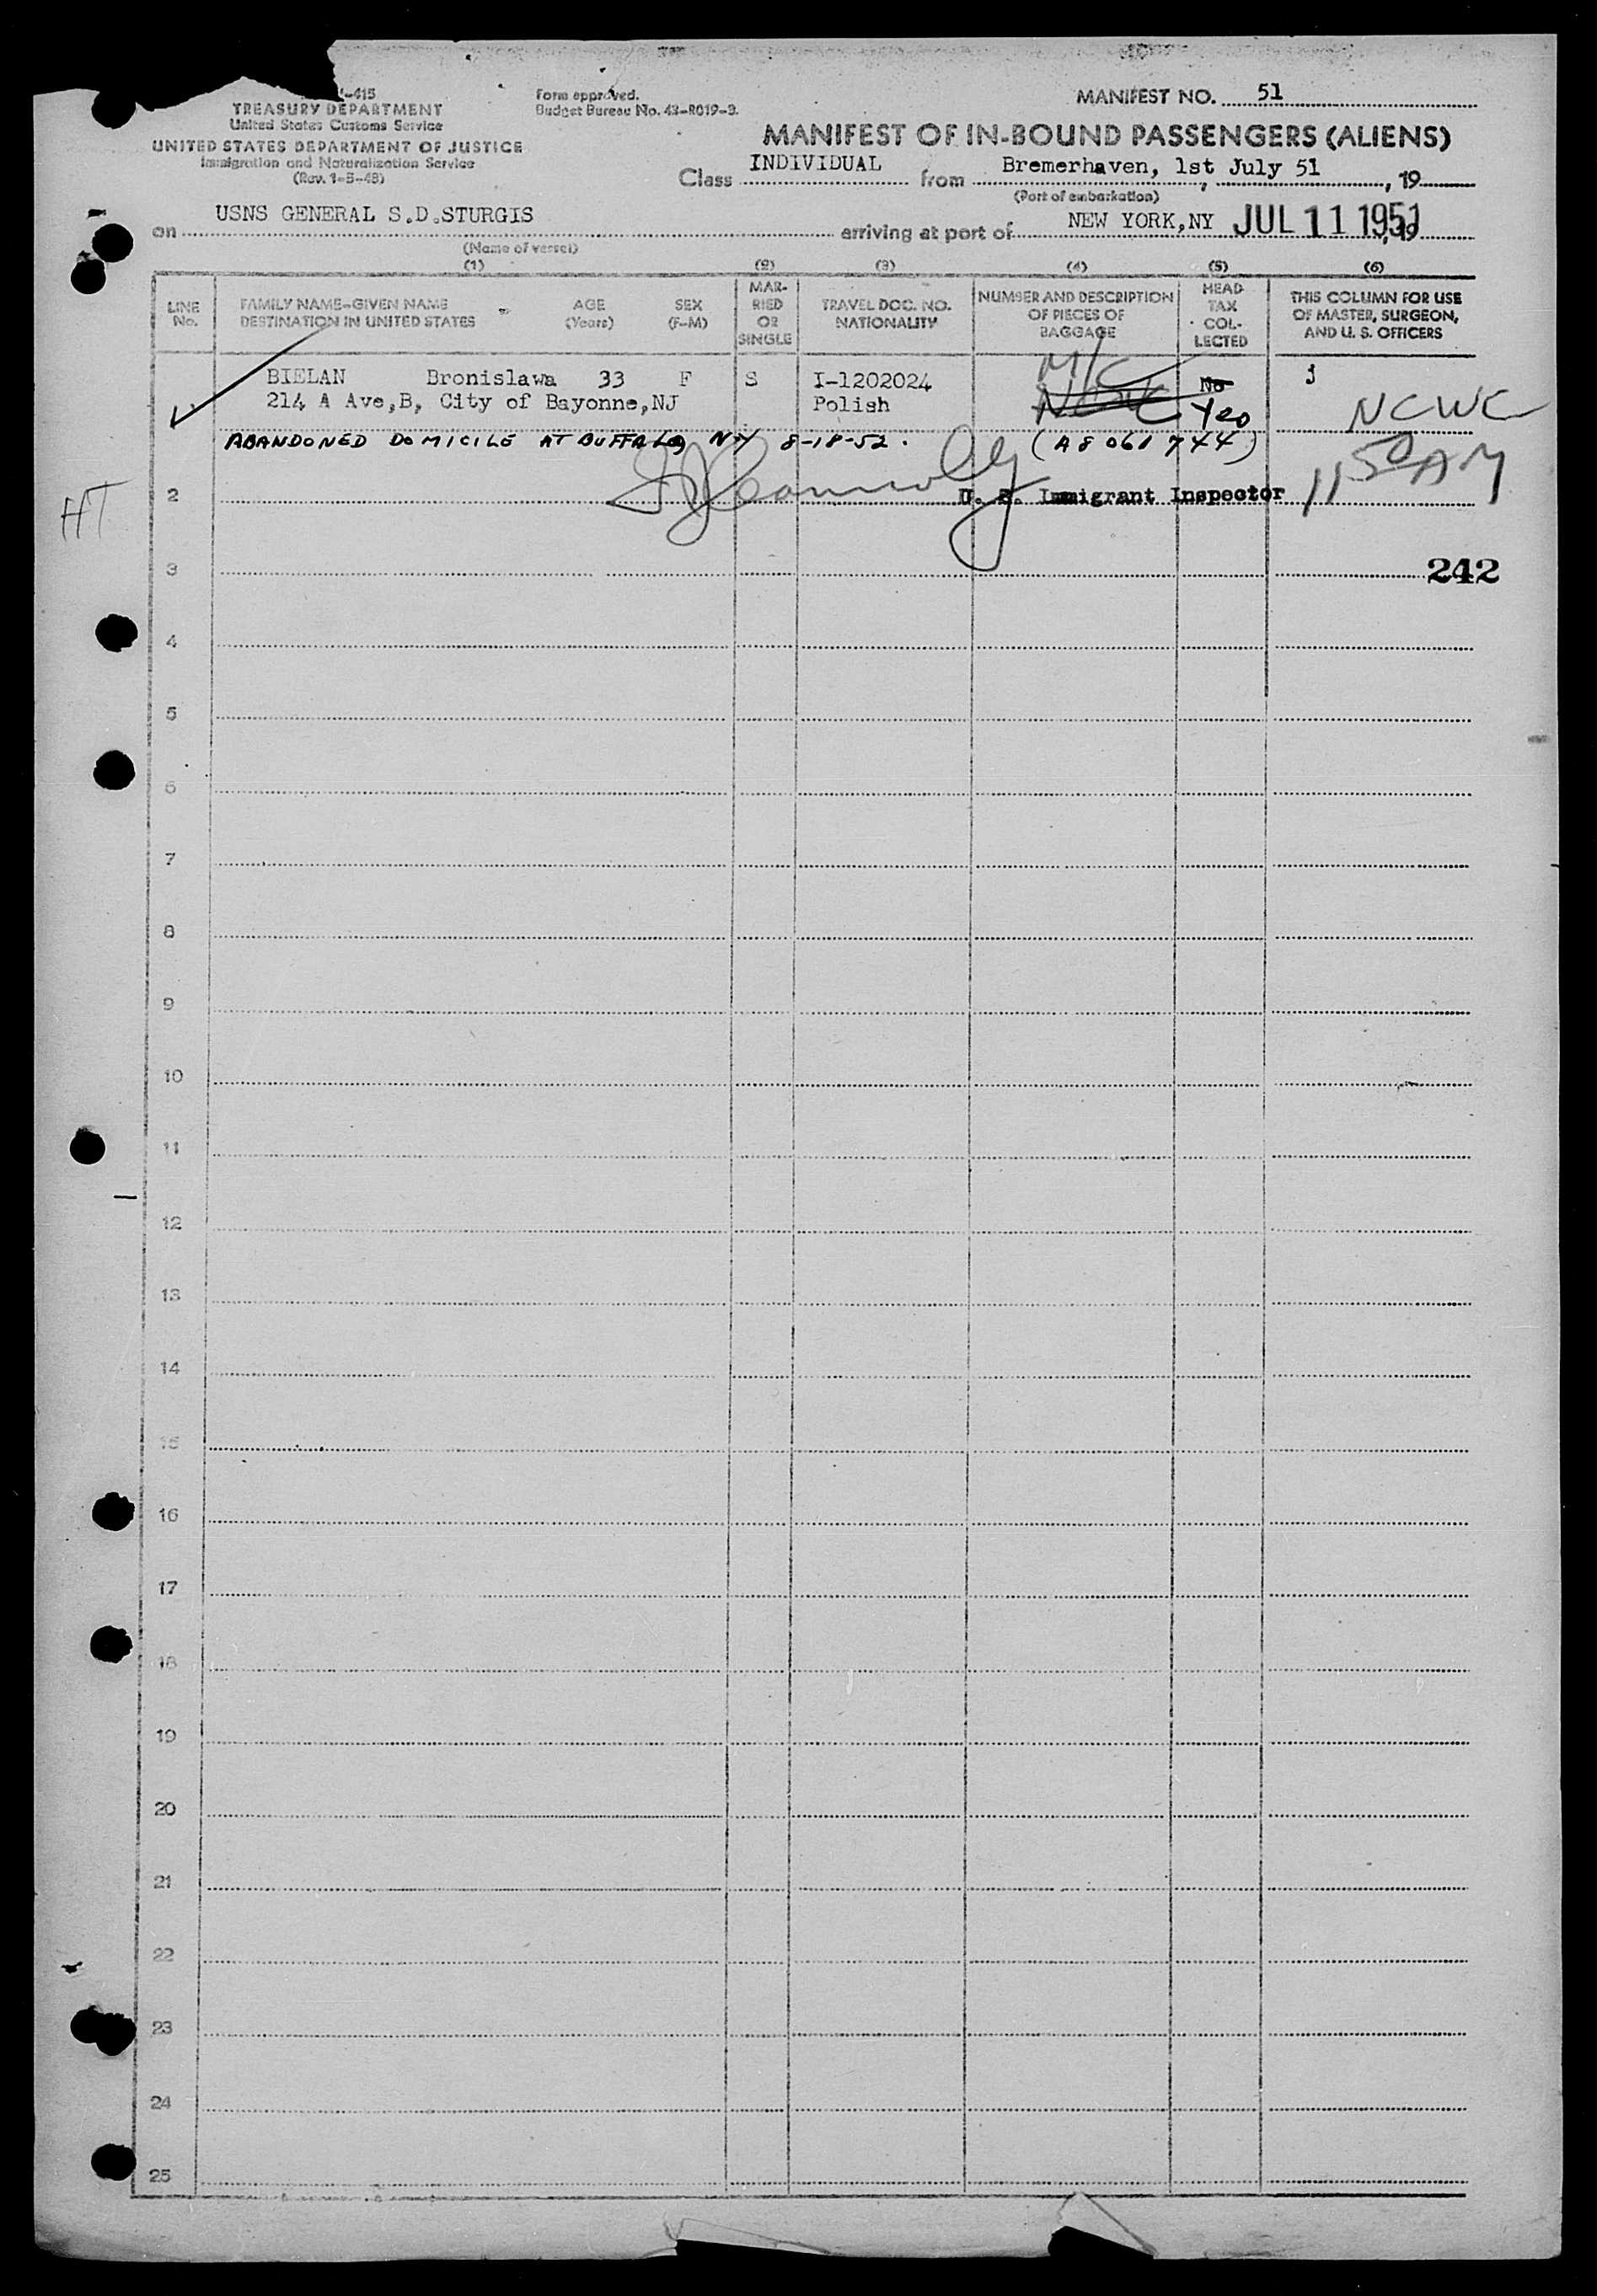 -415
TREASURY DEPARTMENT
United States Customs Service
UNITED STATES DEPARTMENT OF JUSTICE
Immigration and Naturalization Service
(Rev. 1-5-48)
Form approved.
Budget Bureau No. 43-R019-3.
MANIFEST NO. 51
MANIFEST OF IN-BOUND PASSENGERS (ALIENS)
Class INDIVIDUAL from Bremerhaven, 1st July 51, 19
(Port of embarkation)
on USNS GENERAL S.D.STURGIS arriving at port of NEW YORK,NY JUL 11 1951
(Name of vessel)
(1) (2) (3) (4) (5) (6)
LINE No.
FAMILY NAME-GIVEN NAME
DESTINATION IN UNITED STATES
AGE (Years)
SEX (F-M)
MAR-
RIED
OR
SINGLE
TRAVEL DOC. NO.
NATIONALITY
NUMBER AND DESCRIPTION
OF PIECES OF
BAGGAGE
HEAD
TAX
COL-
LECTED
THIS COLUMN FOR USE
OF MASTER, SURGEON,
AND U. S. OFFICERS
BIELAN Bronislawa 33 F S I-1202024 M/C No j
214 A Ave,B, City of Bayonne,NJ Polish Yes NCWC
ABANDONED DOMICILE AT BUFFALO, NY 8-18-52. (A8 061 744)
HT
2 U. S. Immigrant Inspector 11 50 AM
3 242
4
5
6
7
8
9
10
11
12
13
14
15
16
17
18
19
20
21
22
23
24
25